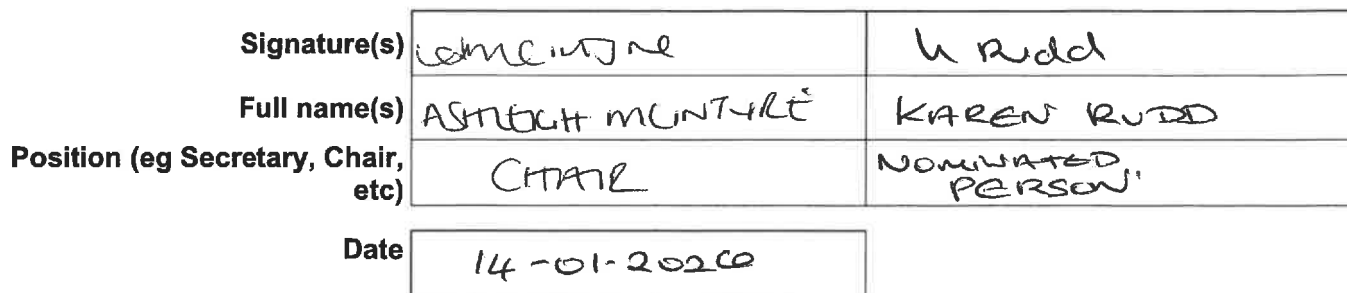 Signature(s) K Rudd
Full name(s) ASHLEIGH MCINTYRE KAREN RUDD
Position (eg Secretary, Chair, NOMINATED
etc) CHAIR PERSON
Date 14-01-2026